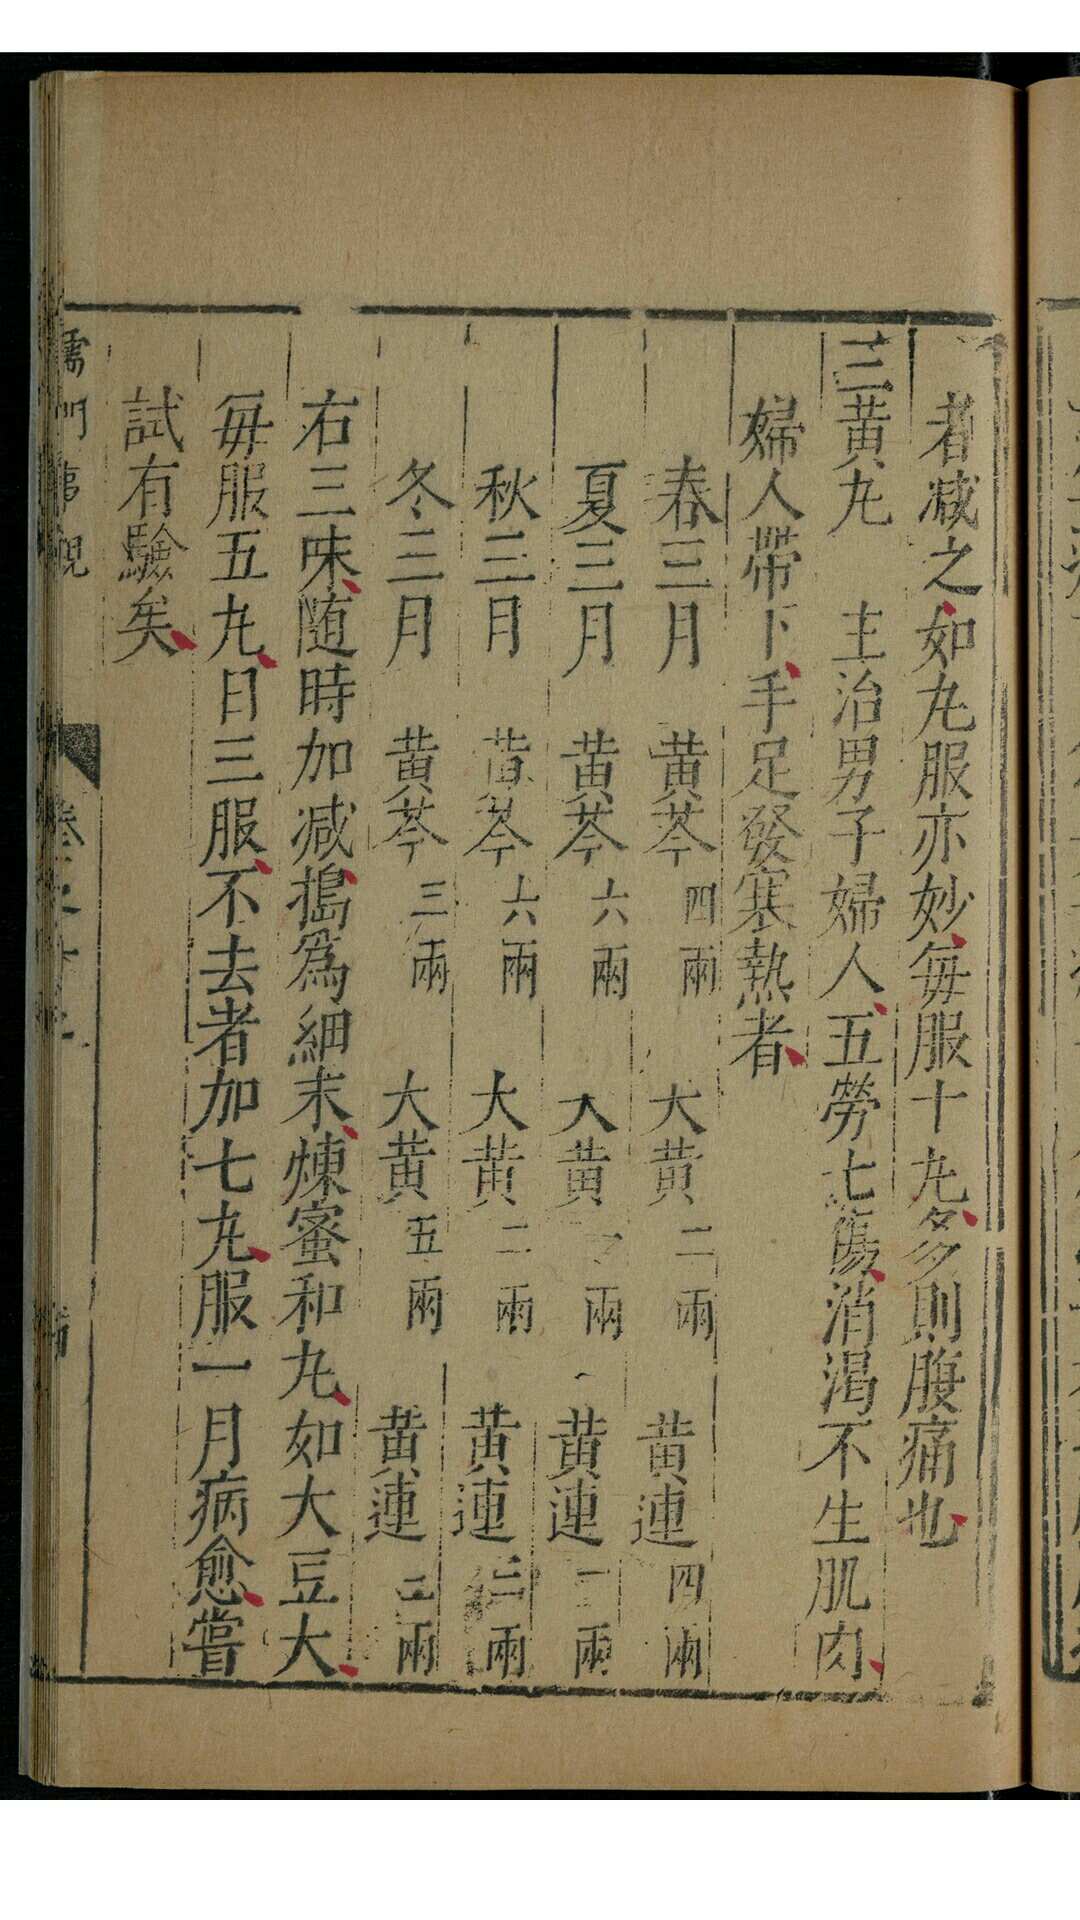 者減之如丸服亦妙毎服十丸多則腹痛也
三黄丸　主治男子婦人五勞七傷消渴不生肌肉
婦人帶下手足發寒熱者
春三月　黄芩四兩　大黄二兩　黄連四兩
夏三月　黄芩六兩　大黄兩　黄連一兩
秋三月　黄芩六兩　大黄二兩　黄連三兩
冬三月　黄芩三兩　大黄五兩　黄連二兩
右三味随時加减搗爲細末煉蜜和丸如大豆大
毎服五丸日三服不去者加七丸服一月病愈嘗
試有驗矣
儒門事親